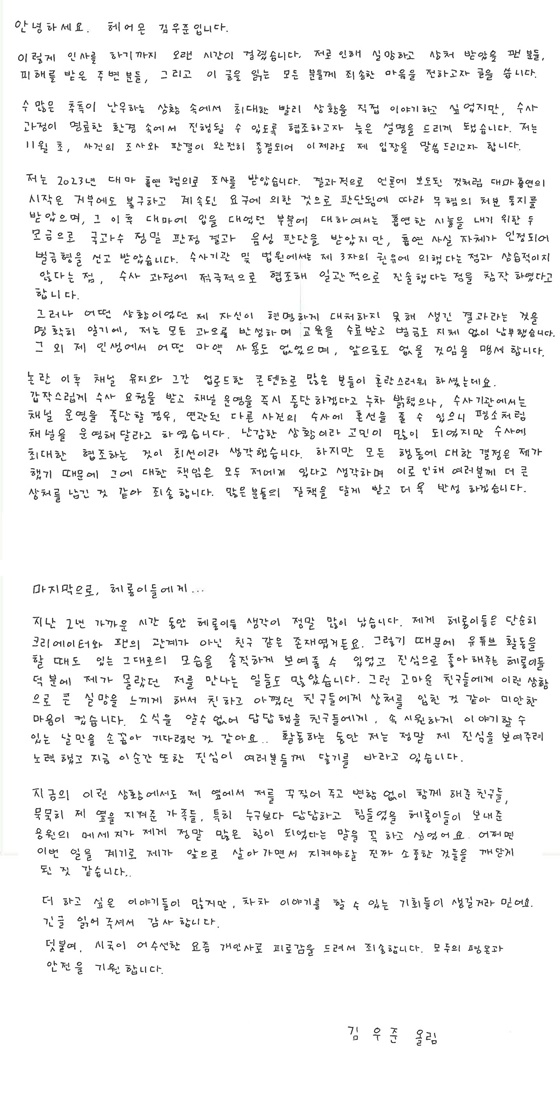 안녕하세요. 헤어몬 김우준입니다.
이렇게 인사를 하기까지 오랜 시간이 걸렸습니다. 저로 인해 실망하고 상처 받았을 팬 분들,
피해를 받은 주변 분들, 그리고 이 글을 읽는 모든 분들께 죄송한 마음을 전하고자 글을 씁니다.
수 많은 추측이 난무하는 상황 속에서 최대한 빨리 상황을 직접 이야기하고 싶었지만, 수사
과정이 명료한 환경 속에서 진행될 수 있도록 협조하고자 늦은 설명을 드리게 됐습니다. 저는
11월 초, 사건의 조사와 판결이 완전히 종결되어 이제라도 제 입장을 말씀드리고자 합니다.
저는 2023년 대마 흡연 혐의로 조사를 받았습니다. 결과적으로 언론에 보도된 것처럼 대마 흡연의
시작은 거부에도 불구하고 계속된 요구에 의한 것으로 판단됨에 따라 무혐의 처분 통지를
받았으며, 그 이후 대마에 입을 대었던 부분에 대하여서는 흡연한 시늉을 내기 위한 두
모금으로 국과수 정밀 판정 결과 음성 판단을 받았지만, 흡연 사실 자체가 인정되어
벌금형을 선고 받았습니다. 수사기관 및 법원에서는 제 3자의 권유에 의했다는 점과 상습적이지
않다는 점, 수사 과정에 적극적으로 협조해 일관적으로 진술했다는 점을 참작 하였다고
합니다.
그러나 어떤 상황이었던 제 자신이 현명하게 대처하지 못해 생긴 결과라는 것을
명확히 알기에, 저는 모든 과오를 반성하며 교육을 수료받고 벌금도 지체 없이 납부했습니다.
그 외 제 인생에서 어떤 마약 사용도 없었으며, 앞으로도 없을 것임을 맹세 합니다.
논란 이후 채널 유지와 그간 업로드한 콘텐츠로 많은 분들이 혼란스러워 하셨는데요.
갑작스럽게 수사 요청을 받고 채널 운영을 즉시 중단하겠다고 누차 밝혔으나, 수사기관에서는
채널 운영을 중단할 경우, 연관된 다른 사건의 수사에 혼선을 줄 수 있으니 평소처럼
채널을 운영해달라고 하였습니다. 난감한 상황이라 고민이 많이 되었지만 수사에
최대한 협조하는 것이 최선이라 생각했습니다. 하지만 모든 행동에 대한 결정은 제가
했기 때문에 그에 대한 책임은 모두 저에게 있다고 생각하며 이로 인해 여러분께 더 큰
상처를 남긴 것 같아 죄송합니다. 많은분들의 질책을 달게 받고 더 욱 반성 하겠습니다.
마지막으로, 헤롱이들에게...
지난 2년 가까운 시간 동안 헤롱이들 생각이 정말 많이 났습니다. 제게 헤롱이들은 단순히
크리에이터와 팬의 관계가 아닌 친구 같은 존재였거든요. 그렇기 때문에 유튜브 활동을
할 때도 있는 그대로의 모습을 솔직하게 보여줄 수 있었고 진심으로 좋아해주는 헤롱이들
덕분에 제가 몰랐던 저를 만나는 일들도 많았습니다. 그런 고마운 친구들에게 이런 상황
으로 큰 실망을 느끼게 해서 친하고 아꼈던 친구들에게 상처를 입힌 것 같아 미안한
마음이 컸습니다. 소식을 알수 없어 답답했을 친구들에게, 속 시원하게 이야기할 수
있는 날만을 손꼽아 기다렸던 것 같아요.. 활동하는 동안 저는 정말 제 진심을 보여주려
노력했고 지금 이순간 또한 진심이 여러분들께 닿기를 바라고 있습니다.
지금의 이런 상황에서도 제 옆에서 저를 꾸짖어 주고 변함 없이 함께 해준 친구들,
묵묵히 제 옆을 지켜준 가족들, 특히 누구보다 답답하고 힘들었을 헤롱이들이 보내준
응원의 메세지가 제게 정말 많은 힘이 되었다는 말을 꼭 하고 싶었어요. 어쩌면
이번 일을 계기로 제가 앞으로 살아가면서 지켜야할 진짜 소중한 것들을 깨닫게
된 것 같습니다..
더 하고 싶은 이야기들이 많지만, 차차 이야기를 할 수 있는 기회들이 생길거라 믿어요.
긴글 읽어 주셔서 감사 합니다.
덧붙여, 시국이 어수선한 요즘 개인사로 피로감을 드려서 죄송합니다. 모두의 평온과
안전을 기원 합니다.
김 우 준 올림